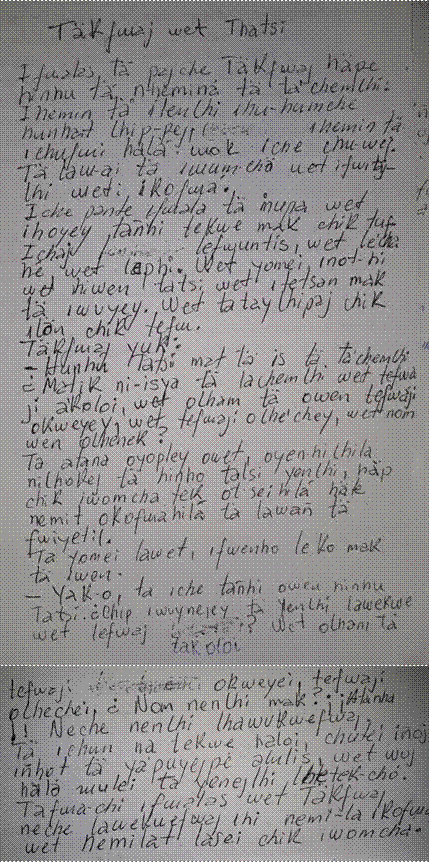 Täkfwaj wet Thatsi
Ifwalas tä pajche Täkfwaj häpe
hinnu tä nhemina tä ta chemlhi:
Ihemin tä ilenlhi ihu-humche
hunhat lhip-pej ihemin tä
ichufwi halä wok iche chu-wej.
Tä law-ai tä iwum-cho wet
lhi weti, ikofwa.
Iche pante ifwala tä inupa wet
ihoyey tanhi tekwe mak chik tuf.
Ichaj lefwuntis, wet
he, wet laphi. Wet yomei, inot-hi
wet hiwen tatsi, wet itetsan mak
tä iwuyey. Wet ta taylhipaj chik
ilon chik tefw.
Täkfwaj yuk:
- Hunhu Tatsi mat tä is tä tachemlhi
¿Matjk ni-isya tä lachemlhi wet tefwa
ji akoloi, wet olham tä owen tefwaji
okweyey, wet tefwaji olhe'chey, wet nom
wen olhehek?
Ta atana oyopley owet, oyenhilhila
nilhokej tä hinho tatsi yenlhi, häp
chik iwomcha tek ot seihila hak
nemit okofwahila tä lawan tä
fwiyetil.
Ta yomei lawet, ifwenho leko mak
tä iwen.
- Yak-o, ta iche tanhi owen hinnu
Tatsi. ¿Chip iwuynejey tä yenlhi lawekwe
wet lefwaj ? Wet olham ta
takoloi
tefwaji okweyei, tefwaji
olhechei, ¿Nom nenlhi mak?
¡! Neche nenlhi lhawukwefwaj,
Tä ichun na tekwe haloi, chutei inoj
inhot tä yäpuyejpe alutis, wet woj
halä wulei tä yenejlhi
Täfwa-chi ifwalas wet Täkfwaj
neche lawekwefwaj ihi nemi-la ikofwa
wet hemilät läsei chik iwomcha.